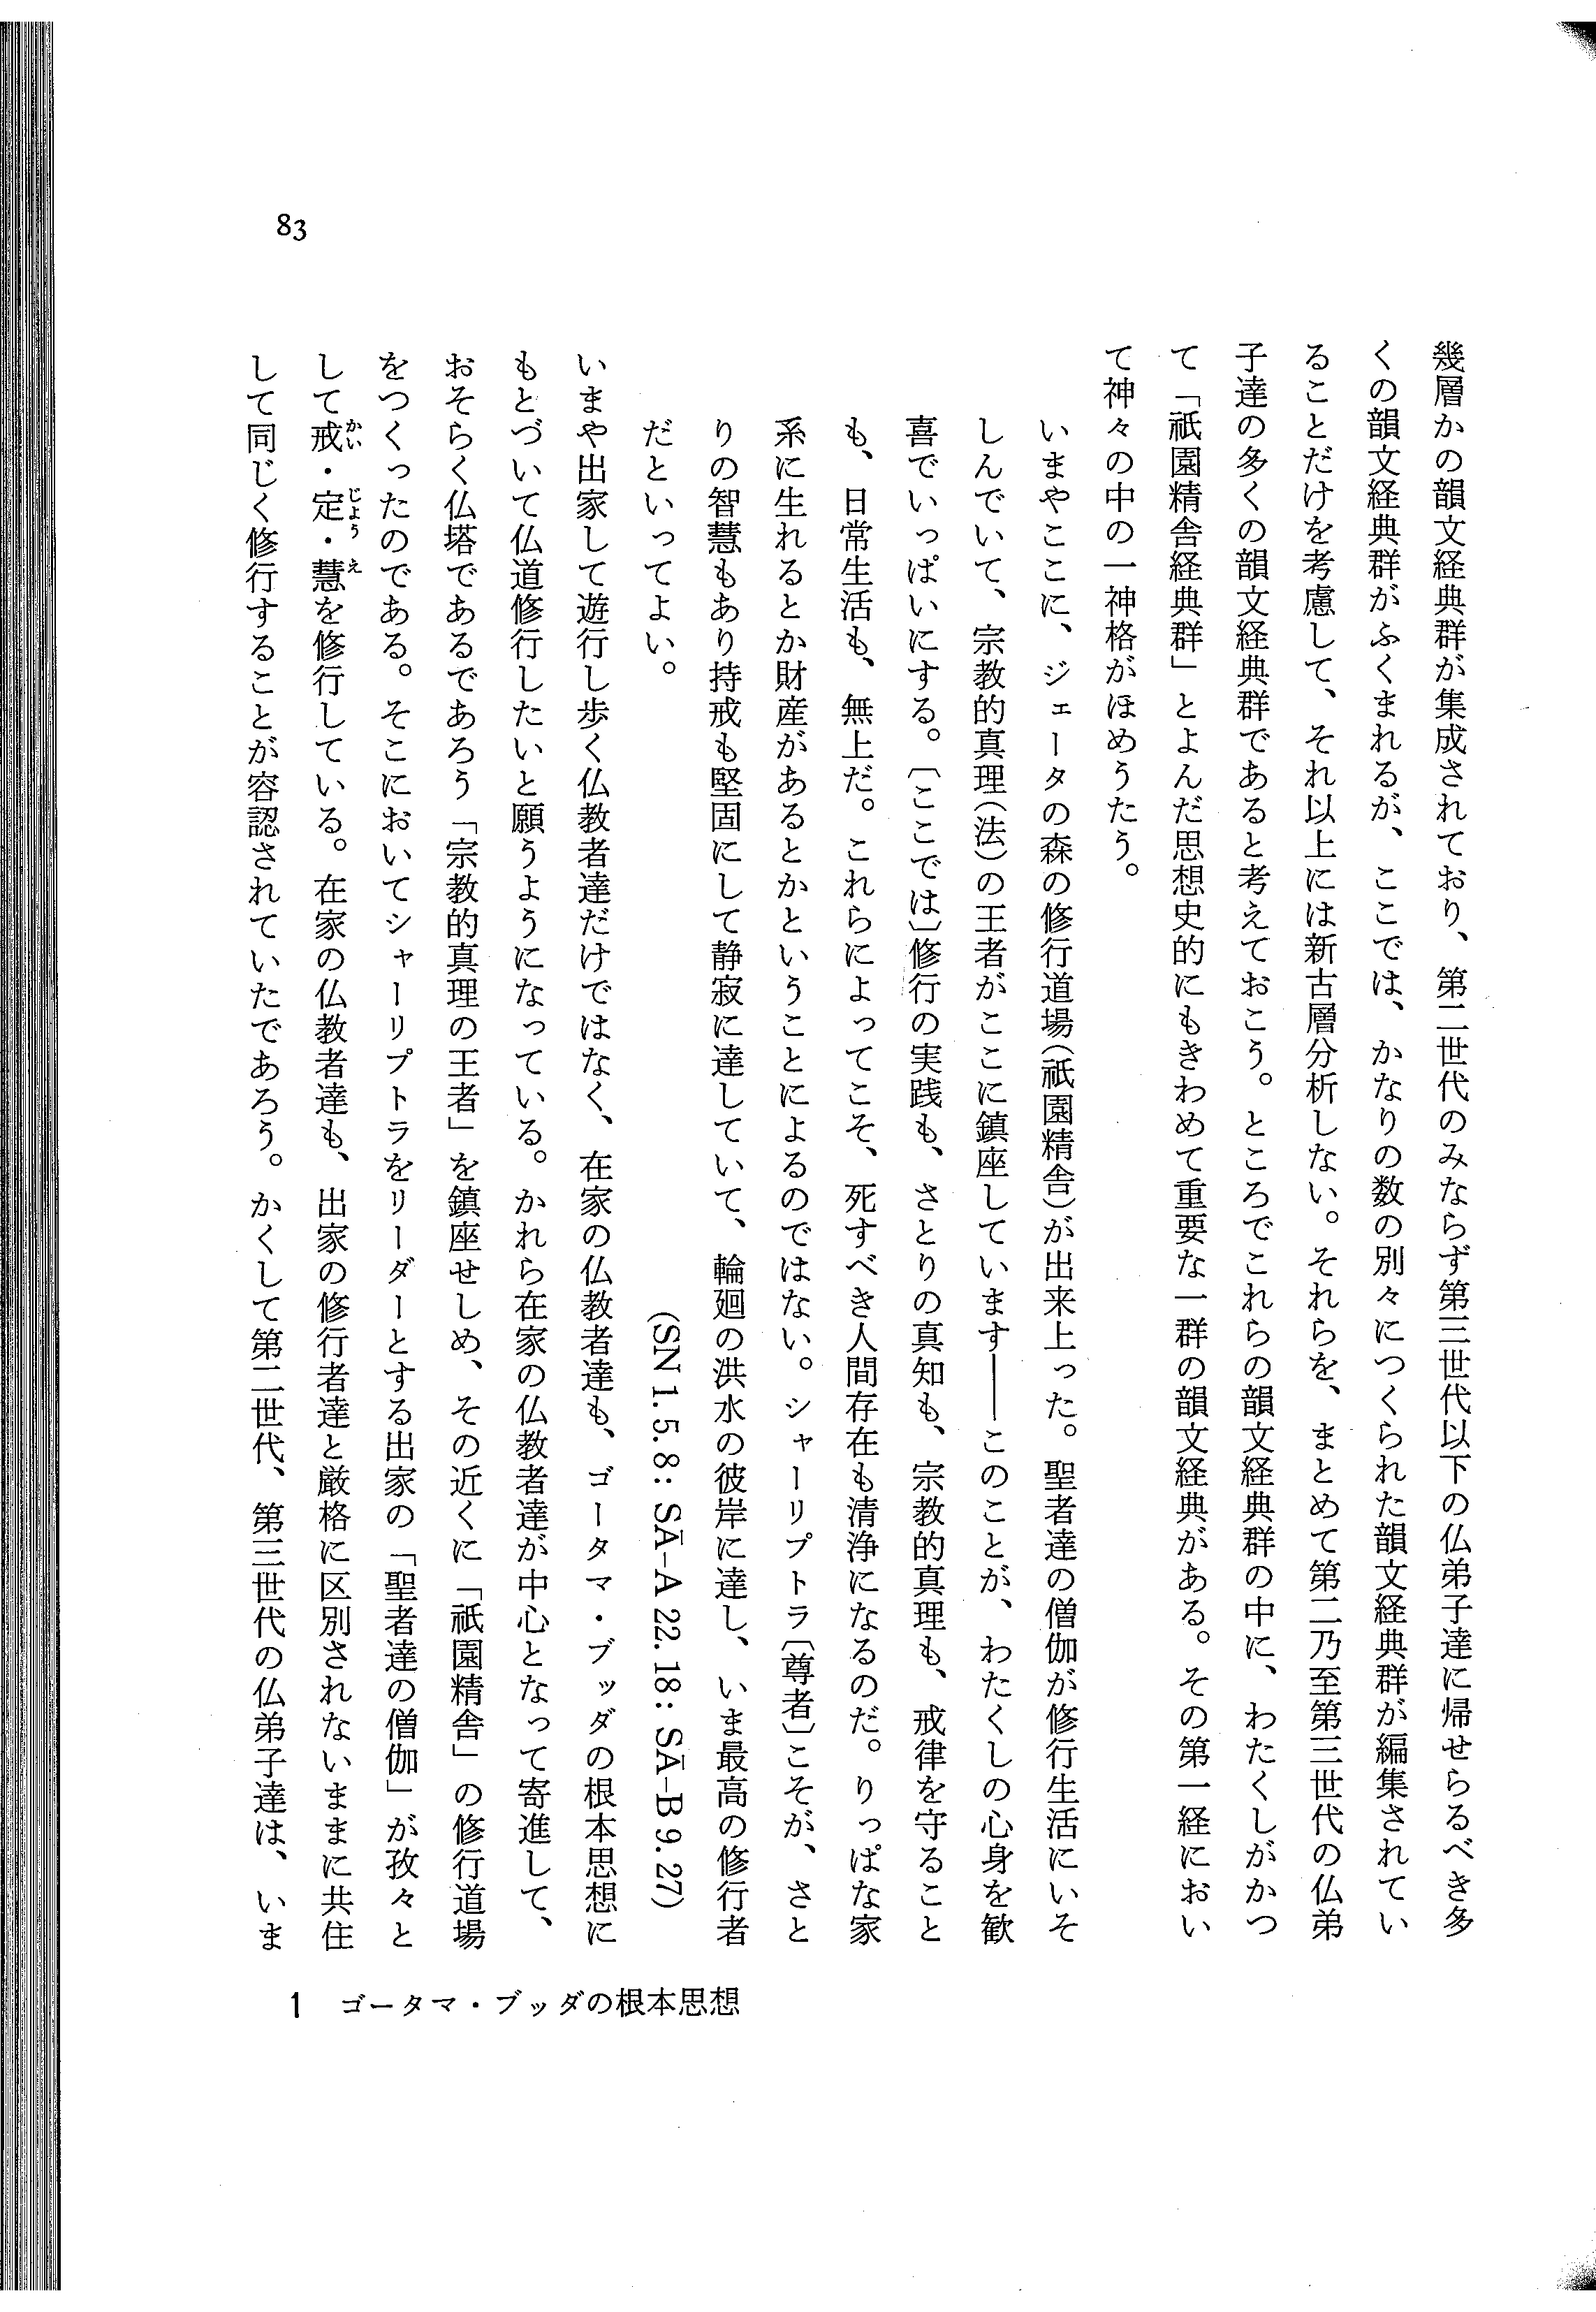 83
幾層かの韻文経典群が集成されており、第二世代のみならず第三世代以下の仏弟子達に帰せらるべき多
くの韻文経典群がふくまれるが、ここでは、かなりの数の別々につくられた韻文経典群が編集されてい
ることだけを考慮して、それ以上には新古層分析しない。それらを、まとめて第二乃至第三世代の仏弟
子達の多くの韻文経典群であると考えておこう。ところでこれらの韻文経典群の中に、わたくしがかつ
て「祇園精舎経典群」とよんだ思想史的にもきわめて重要な一群の韻文経典がある。その第一経におい
て神々の中の一神格がほめうたう。
いまやここに、ジェータの森の修行道場(祇園精舎)が出来上った。聖者達の僧伽が修行生活にいそ
しんでいて、宗教的真理(法)の王者がここに鎮座しています――このことが、わたくしの心身を歓
喜でいっぱいにする。〔ここでは〕修行の実践も、さとりの真知も、宗教的真理も、戒律を守ること
も、日常生活も、無上だ。これらによってこそ、死すべき人間存在も清浄になるのだ。りっぱな家
系に生れるとか財産があるとかということによるのではない。シャーリプトラ〔尊者〕こそが、さと
りの智慧もあり持戒も堅固にして静寂に達していて、輪廻の洪水の彼岸に達し、いま最高の修行者
だといってよい。 (SN 1. 5. 8: SĀ-A 22. 18: SĀ-B 9. 27)
いまや出家して遊行し歩く仏教者達だけではなく、在家の仏教者達も、ゴータマ・ブッダの根本思想に
もとづいて仏道修行したいと願うようになっている。かれら在家の仏教者達が中心となって寄進して、
おそらく仏塔であるであろう「宗教的真理の王者」を鎮座せしめ、その近くに「祇園精舎」の修行道場
をつくったのである。そこにおいてシャーリプトラをリーダーとする出家の「聖者達の僧伽」が孜々と
して戒(かい)・定(じょう)・慧(え)を修行している。在家の仏教者達も、出家の修行者達と厳格に区別されないままに共住
して同じく修行することが容認されていたであろう。かくして第二世代、第三世代の仏弟子達は、いま
1 ゴータマ・ブッダの根本思想